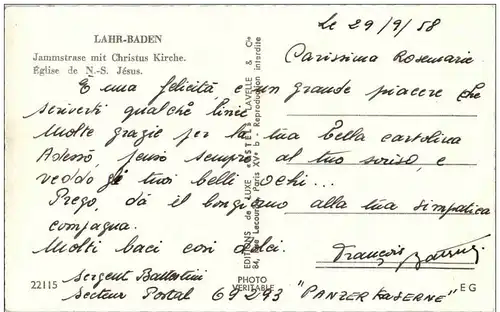 LAHR-BADEN
Jammstrase mit Christus Kirche.
Église de N.-S. Jésus.
Le 29/9/58
Carissima Rosemarie
E una felicità e un grande piacere che
scriverti qualche linie
Molte grazie per la tua bella cartolina
Adesso, penso sempre al tuo soriso, e
veddo gi tuoi belli ochi...
Prego, da il bongiorno alla tua simpatica
compagna.
Molti baci cosi dolci.
François
Sergent Battestini
Secteur Postal 69293 "PANZER KASERNE"
EDITIONS de LUXE "ESTEL" LAVELLE & Cie
84, Rue Lecourbe, Paris XVe b - Reproduction interdite
PHOTO
VERITABLE
22115
EG